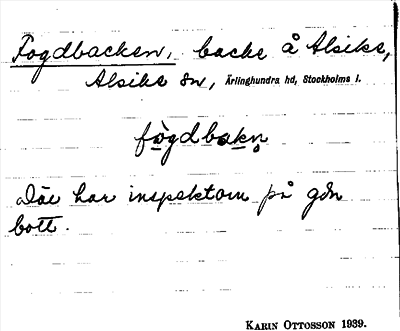 Fogdbacken, backe å Alsike,
Alsike sn, Ärlinghundra hd, Stockholms l.
fògdbakn̥
Där har inspektorn på gdn
bott.
KARIN OTTOSSON 1939.